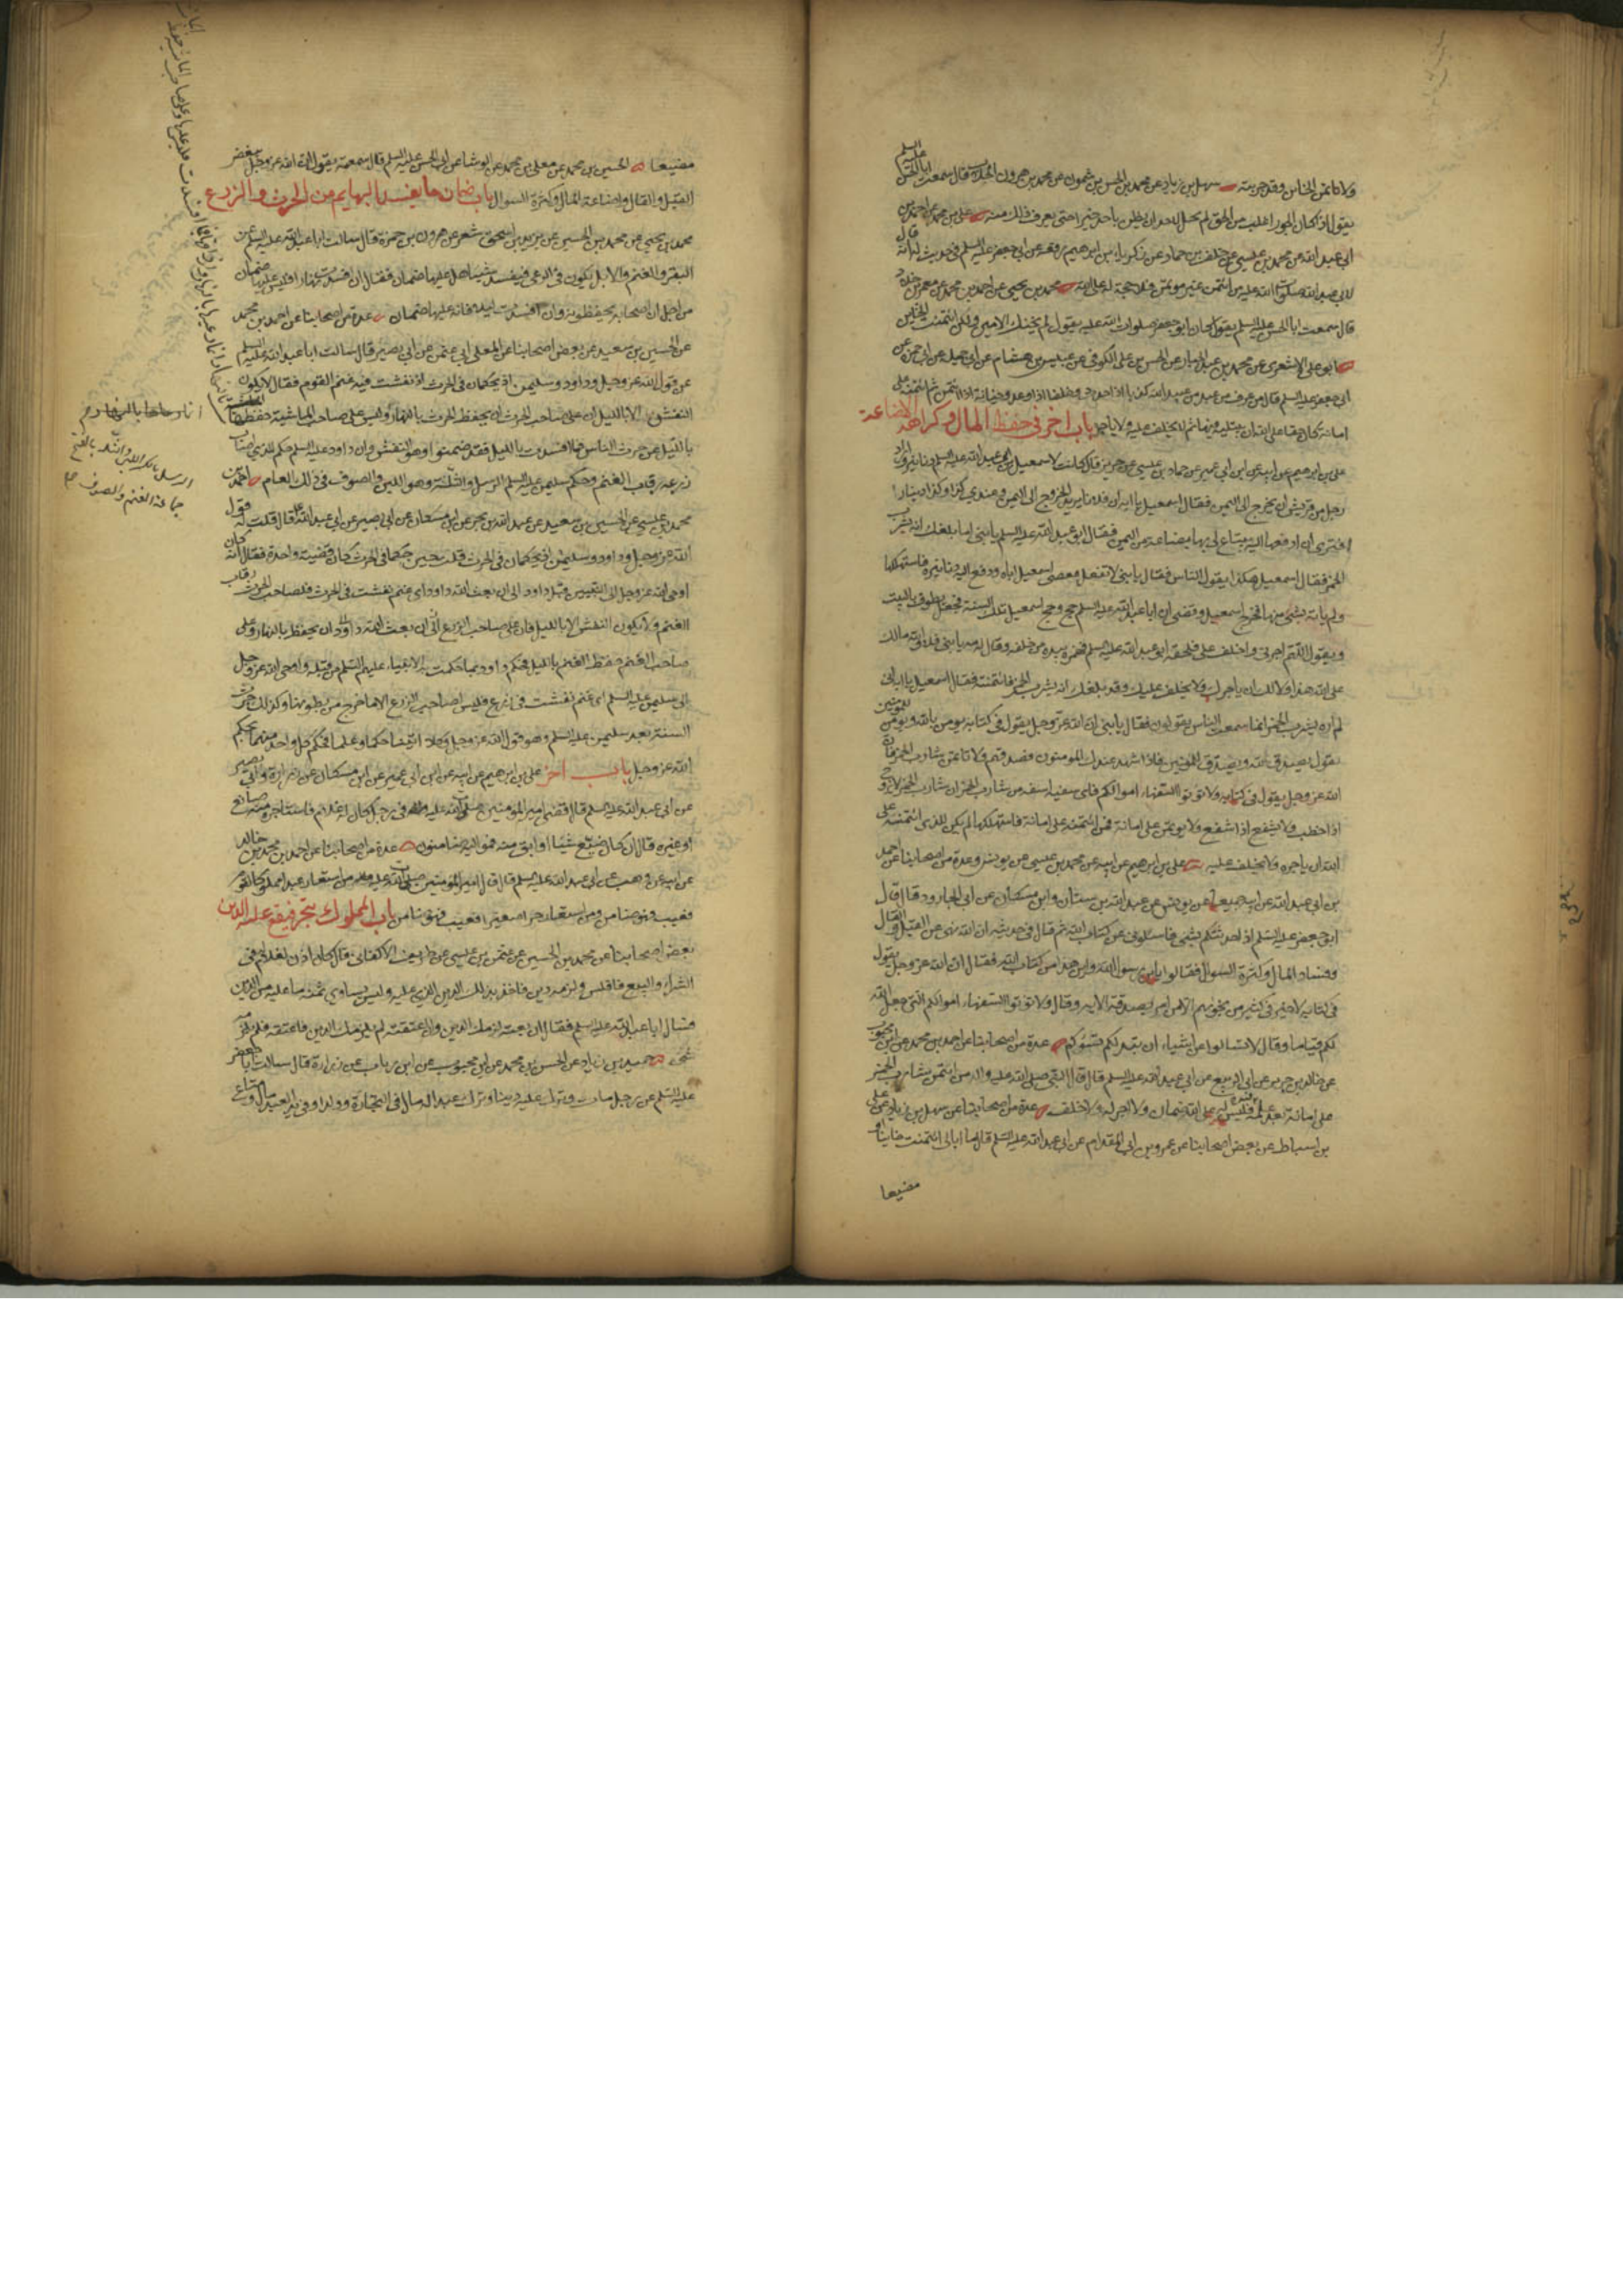 ولا تاتمن الخاين وقد جربته سهل بن زياد عن محمد بن الحسن بن شمون عن محمد بن هرون الجلاب قال سمعت ابا الحسن عليه السلم
يقول اذا كان الجور اغلب من الحق لم يحل لاحد ان يظن باحد خيرا حتى يعرف ذلك منه علي بن محمد عن احمد بن
ابي عبد الله عن محمد بن عيسى عن خلف بن حماد عن زكريا بن ابرهيم رفعه عن ابي جعفر عليه السلم في حديث له انه قال
لابي عبد الله صلوات الله عليه من ائتمن غير مؤتمن فلا حجة له على الله محمد بن يحيى عن احمد بن محمد عن معمر بن خلاد
قال سمعت ابا الحسن عليه السلم يقول كان ابو جعفر صلوات الله عليه يقول لم يخنك الامين ولكن ائتمنت الخاين
ابو علي الاشعري عن محمد بن عبد الجبار عن الحسن بن علي الكوفي عن عبيس بن هشام عن ابي جميلة عن ابي حمزة عن
ابي جعفر عليه السلم قال من عرف من عبد من عبيد الله كذبا اذا حدث وخلفا اذا وعد وخيانة اذا ائتمن ثم ائتمنه على
امانة كان حقا على الله ان يبتليه فيها ثم لا يخلف عليه ولا ياجره باب اخر في حفظ المال وكراهة الاضاعة
علي بن ابرهيم عن ابيه عن ابن ابي عمير عن حماد بن عيسى عن حريز قال كانت لاسمعيل بن ابي عبد الله عليه السلم دنانير واراد
رجل من قريش ان يخرج الى اليمن فقال اسمعيل يا ابه ان فلانا يريد الخروج الى اليمن وعندي كذا وكذا دينارا
افترى ان ادفعها اليه يبتاع لي بها بضاعة من اليمن فقال ابو عبد الله عليه السلم يا بني اما بلغك انه يشرب
الخمر فقال اسمعيل هكذا يقول الناس فقال يا بني لا تفعل فعصى اسمعيل اباه ودفع اليه دنانيره فاستهلكها
ولم ياته بشيء منها فخرج اسمعيل وقضى ان ابا عبد الله عليه السلم حج وحج اسمعيل تلك السنة فجعل يطوف بالبيت
ويقول اللهم اجرني واخلف علي فلحقه ابو عبد الله عليه السلم فهمزه بيده من خلفه وقال له مه يا بني فلا والله مالك
على الله هذا ولا لك ان ياجرك ولا يخلف عليك وقد بلغك انه يشرب الخمر فائتمنته فقال اسمعيل يا ابه اني
لم اره يشرب الخمر انما سمعت الناس يقولون فقال يا بني ان الله عز وجل يقول في كتابه يومن بالله ويومن للمومنين
يقول يصدق لله ويصدق للمومنين فاذا شهد عندك المومنون فصدقهم ولا تاتمن شارب الخمر فان
الله عز وجل يقول في كتابه ولا توتوا السفهاء اموالكم فاي سفيه اسفه من شارب الخمر ان شارب الخمر لا يزوج
اذا خطب ولا يشفع اذا شفع ولا يوتمن على امانة فمن ائتمنه على امانة فاستهلكها لم يكن للذي ائتمنه على
الله ان ياجره ولا يخلف عليه علي بن ابرهيم عن ابيه عن محمد بن عيسى عن يونس وعدة من اصحابنا عن احمد
بن ابي عبد الله عن ابيه جميعا عن يونس عن عبد الله بن سنان وابن مسكان عن ابي الجارود قال قال
ابو جعفر عليه السلم اذا حدثتكم بشيء فاسئلوني عن كتاب الله ثم قال في حديثه ان الله نهى عن القيل والقال
وفساد المال وكثرة السوال فقالوا يابن رسول الله واين هذا من كتاب الله فقال ان الله عز وجل يقول
في كتابه لا خير في كثير من نجويهم الا من امر بصدقة الاية وقال ولا توتوا السفهاء اموالكم التي جعل الله
لكم قياما وقال لا تسالوا عن اشياء ان تبد لكم تسؤكم عدة من اصحابنا عن احمد بن محمد عن ابن محبوب
عن خالد بن جرير عن ابي الربيع عن ابي عبد الله عليه السلم قال قال النبي صلى الله عليه واله من ائتمن شارب الخمر
على امانة بعد علمه فيه فليس له على الله ضمان ولا اجر له ولا خلف عدة من اصحابنا عن سهل بن زياد عن علي
بن اسباط عن بعض اصحابنا عن عمرو بن ابي المقدام عن ابي عبد الله عليه السلم قال ما ابالي ائتمنت خاينا او
مضيعا
مضيعا الحسين بن محمد عن معلى بن محمد عن الوشا عن ابي الحسن عليه السلم قال سمعته يقول ان الله عز وجل يبغض
القيل والقال واضاعة المال وكثرة السوال باب ضمان ما يفسد البهايم من الحرث والزرع
محمد بن يحيى عن محمد بن الحسين عن يزيد بن اسحق شعر عن هرون بن حمزة قال سالت ابا عبد الله عليه السلم عن
البقر والغنم والابل يكون في الرعي فيفسد شيئا هل عليها ضمان فقال ان افسدت نهارا فليس عليها ضمان
من اجل ان اصحابه يحفظونه وان افسدت ليلا فانه عليها ضمان عدة من اصحابنا عن احمد بن محمد
عن الحسين بن سعيد عن بعض اصحابنا عن المعلى ابي عثمن عن ابي بصير قال سالت ابا عبد الله عليه السلم
عن قول الله عز وجل وداود وسليمن اذ يحكمان في الحرث اذ نفشت فيه غنم القوم فقال لا يكون
النفش الا بالليل ان على صاحب الحرث ان يحفظ الحرث بالنهار وليس على صاحب الماشية حفظها
بالليل عن حرث الناس فما افسدت بالليل فقد ضمنوا وهو النفش وان داود عليه السلم حكم للذي اصاب
زرعه رقاب الغنم وحكم سليمن عليه السلم الرسل والثلة وهو اللبن والصوف في ذلك العام احمد بن
محمد بن عيسى عن الحسين بن سعيد عن عبد الله بن بحر عن ابن مسكان عن ابي بصير عن ابي عبد الله عليه السلم قال قلت له قول
الله عز وجل وداود وسليمن اذ يحكمان في الحرث قلت حين حكما في الحرث كان قضية واحدة فقال انه كان
اوحى الله عز وجل الى النبيين قبل داود الى ان بعث الله داود اي غنم نفشت في الحرث فلصاحب الحرث رقاب
الغنم ولا يكون النفش الا بالليل فان على صاحب الزرع ان يحفظ بالنهار وعلى
صاحب الغنم حفظ الغنم بالليل فحكم داود بما حكمت به الانبياء عليهم السلم من قبله واوحى الله عز وجل
الى سليمن عليه السلم اي غنم نفشت في زرع فليس لصاحب الزرع الا ما خرج من بطونها وكذلك جرت
السنة بعد سليمن عليه السلم وهو قول الله عز وجل وكلا اتينا حكما وعلما فحكم كل واحد منهما بحكم
الله عز وجل باب اخر علي بن ابرهيم عن ابيه عن ابن ابي عمير عن ابن مسكان عن زرارة وابي بصير
عن ابي عبد الله عليه السلم قال قضى امير المومنين صلوات الله عليه في رجل كان له غلام فاستاجره منه صانع
او غيره قال ان كان ضيع شيئا او ابق منه فمواليه ضامنون عدة من اصحابنا عن احمد بن محمد بن خالد
عن ابيه عن وهب عن ابي عبد الله عليه السلم قال قال امير المومنين صلوات الله عليه من استعار عبدا مملوكا لقوم
فعيب فهو ضامن ومن استعار حرا صغيرا فعيب فهو ضامن باب المملوك يتجر فيقع عليه الدين
بعض اصحابنا عن محمد بن الحسين عن عثمن بن عيسى عن ظريف الاكفاني قال كان اذن لغلام له في
الشراء والبيع فافلس ولزمه دين فاخذ بذلك الدين الذي عليه وليس يساوي ثمنه ما عليه من الدين
فسال ابا عبد الله عليه السلم فقال ان بعته لزمك الدين وان اعتقته لم يلزمك الدين فاعتقه فلم يلزمه
شيء حميد بن زياد عن الحسن بن محمد عن ابن محبوب عن ابن رياب عن زرارة قال سالت ابا جعفر
عليه السلم عن رجل مات وترك عليه دينا وترك عبدا له مال في التجارة وولدا وفي يد العبد مال ومتاع
الرسل بالكسر اللبن والثلة بالفتح
جماعة الغنم والصوف